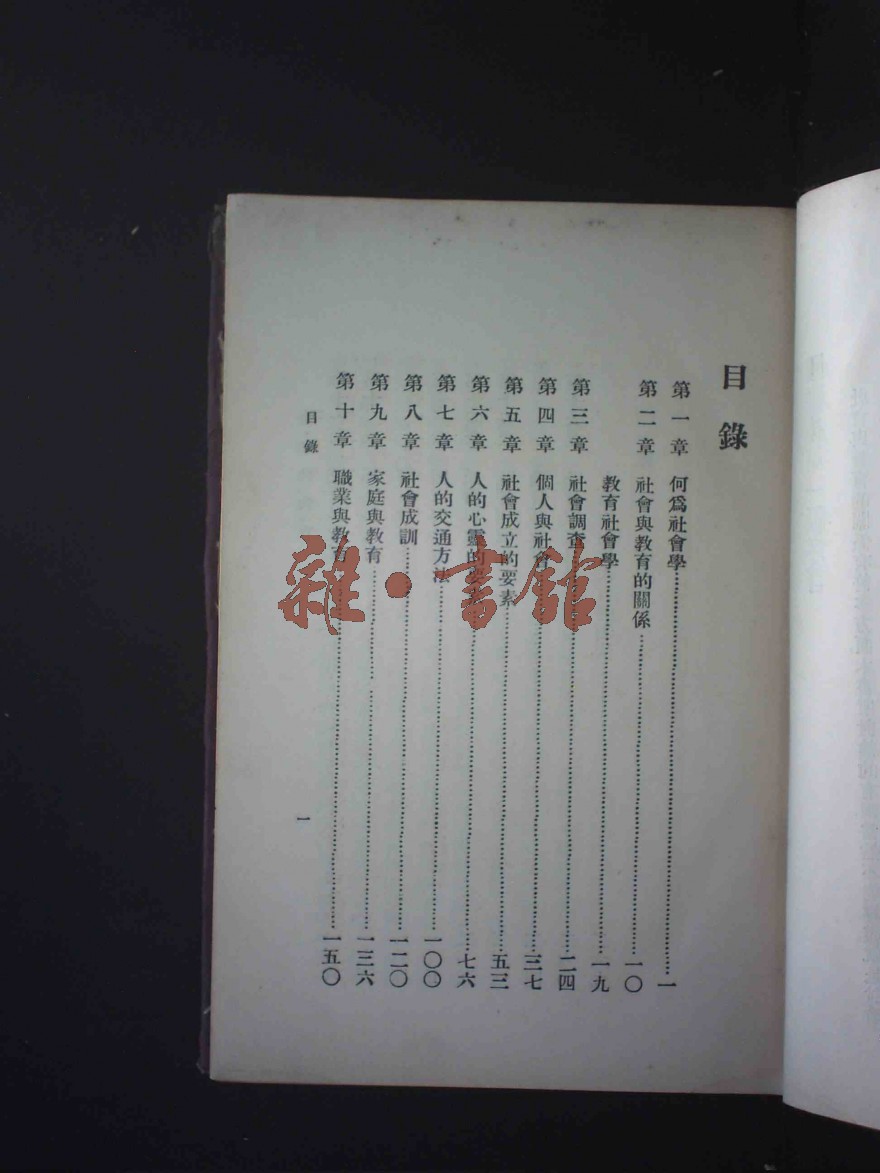 目錄
第一章 何爲社會學……一
第二章 社會與教育的關係……一〇
教育社會學……一九
第三章 社會調查……二四
第四章 個人與社會……三七
第五章 社會成立的要素……五三
第六章 人的心靈的要素……七六
第七章 人的交通方法……一〇〇
第八章 社會成訓……一二〇
第九章 家庭與教育……一三六
第十章 職業與教育……一五〇
目錄
一
雜·書館